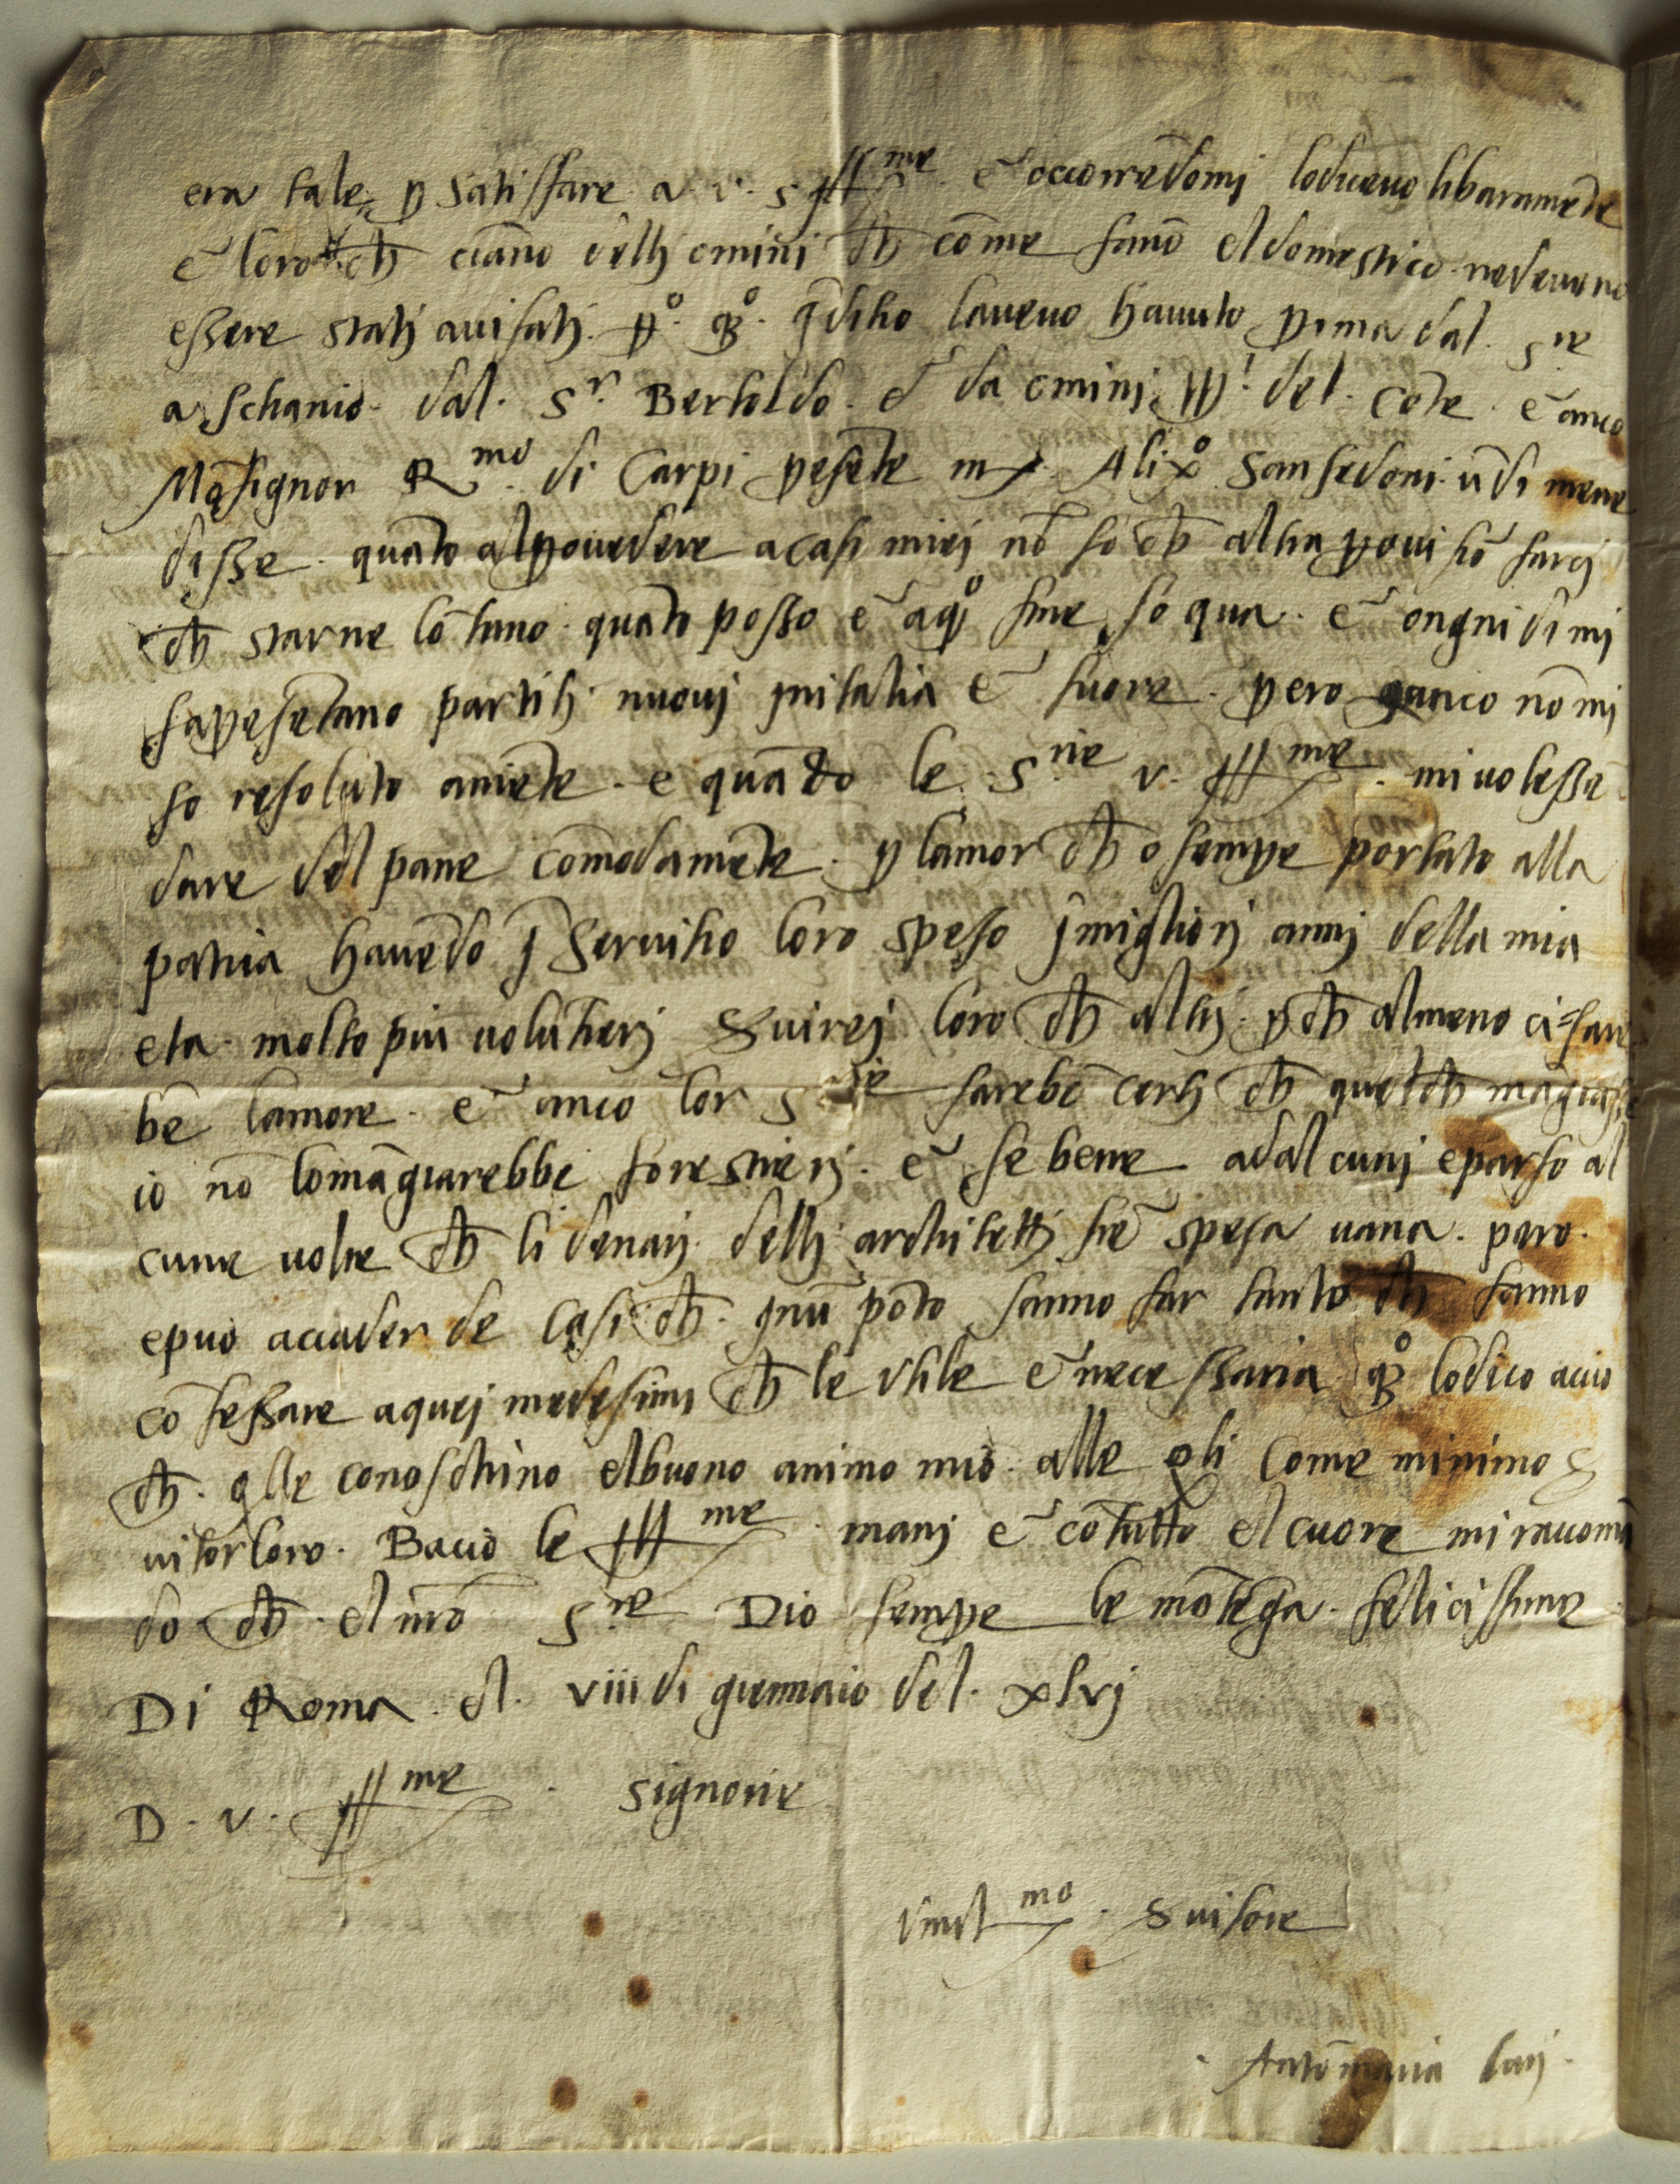 era tale p satisfare a. v. s. Ill.me e occorrēdomi lodiceuo libaramēte
e loro ch ciāno delli omini ch cōme fanō el domestico nedeueno
essere stati auisati. pº. qº. īditio laueuo hauuto prima dal. s.re
aschanio. dal. S.r Bertoldo. e da omini pp.i del. cōte. e anco
Mōsignor R.mo di Carpi presēte mr. Alixº Sansedoni. ūdi mene
disse. quāto alprouedere acasi miei nō so ch altra prouisiō farci
ch starne lōtano. quāto posso e aqº fine so qua. e ongni di mi
sapresētano partiti. nuovi initalia e fuore. pero anco nō mi
so resoluto aniēte. e quādo le. S.rie v. Ill.me. mi uolessē
dare del pane cōmodamēte. p lamor ch o sempre portato alla
patria havēdo ī seruitio loro speso i migliori anni della mia
eta. molto piu uolūtieri Suirei loro ch altri. pch almeno ci sare
be lamore. e anco lor S.rie sarebē certi ch quel ch māgiasse
io nō lo māgiarebbe forestieri. e se bene adalcuni eparso al
cune uolte ch li denari delli architetti siē spesa uana. pero.
epuo accader de casi ch. inū pōto sanno far tanto ch fanno
cōfessare aquei medesimi ch le vtile e necessaria qº lodico acio
ch. qlle conoschino elbuono animo mio. alle qli come minimo S
uitor loro. Bacio le Ill.me mani e cōtutto el cuore mi racomā
do ch. el nrō S.re Dio sempre le mātēga. felicissime
Di Roma. el. viii di giennaio del. xlvj
D. v. Ill.me. Signorie
Vmil.mo. Suitore
Antōmaria Lari.